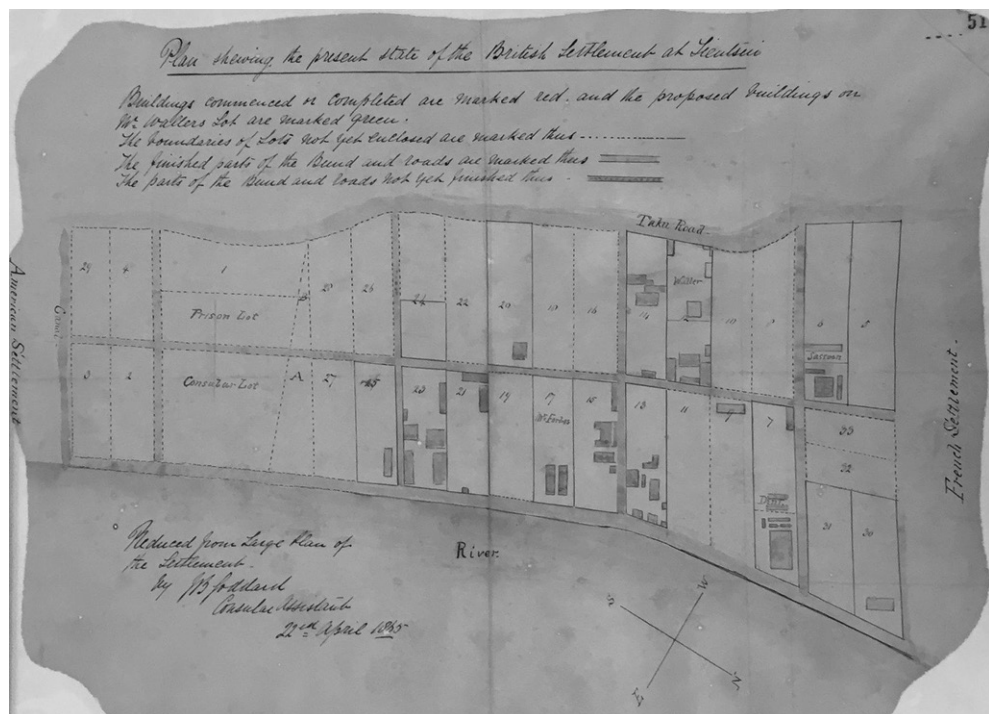 51
Plan shewing the present state of the British Settlement at Tientsin
Buildings commenced or completed are marked red. and the proposed buildings on
Mr Wallers Lot are marked green.
The boundaries of Lots not yet enclosed are marked thus
The finished parts of the Bund and roads are marked thus
The parts of the Bund and roads not yet finished thus
Taku Road
American Settlement
Canal
29 4 1 28 26 24 22 20 18 16 14 Waller 10 8 6 5
Prison Lot
B
Sassoon
3 2 Consular Lot A 27 25 23 21 19 17 15 13 11 9 7 33
Mr Forbes
32
Dent
31 30
French Settlement.
River
Reduced from Large Plan of
the Settlement.
by JB Goddard
Consular Assistant
22nd April 1865
S W
E N